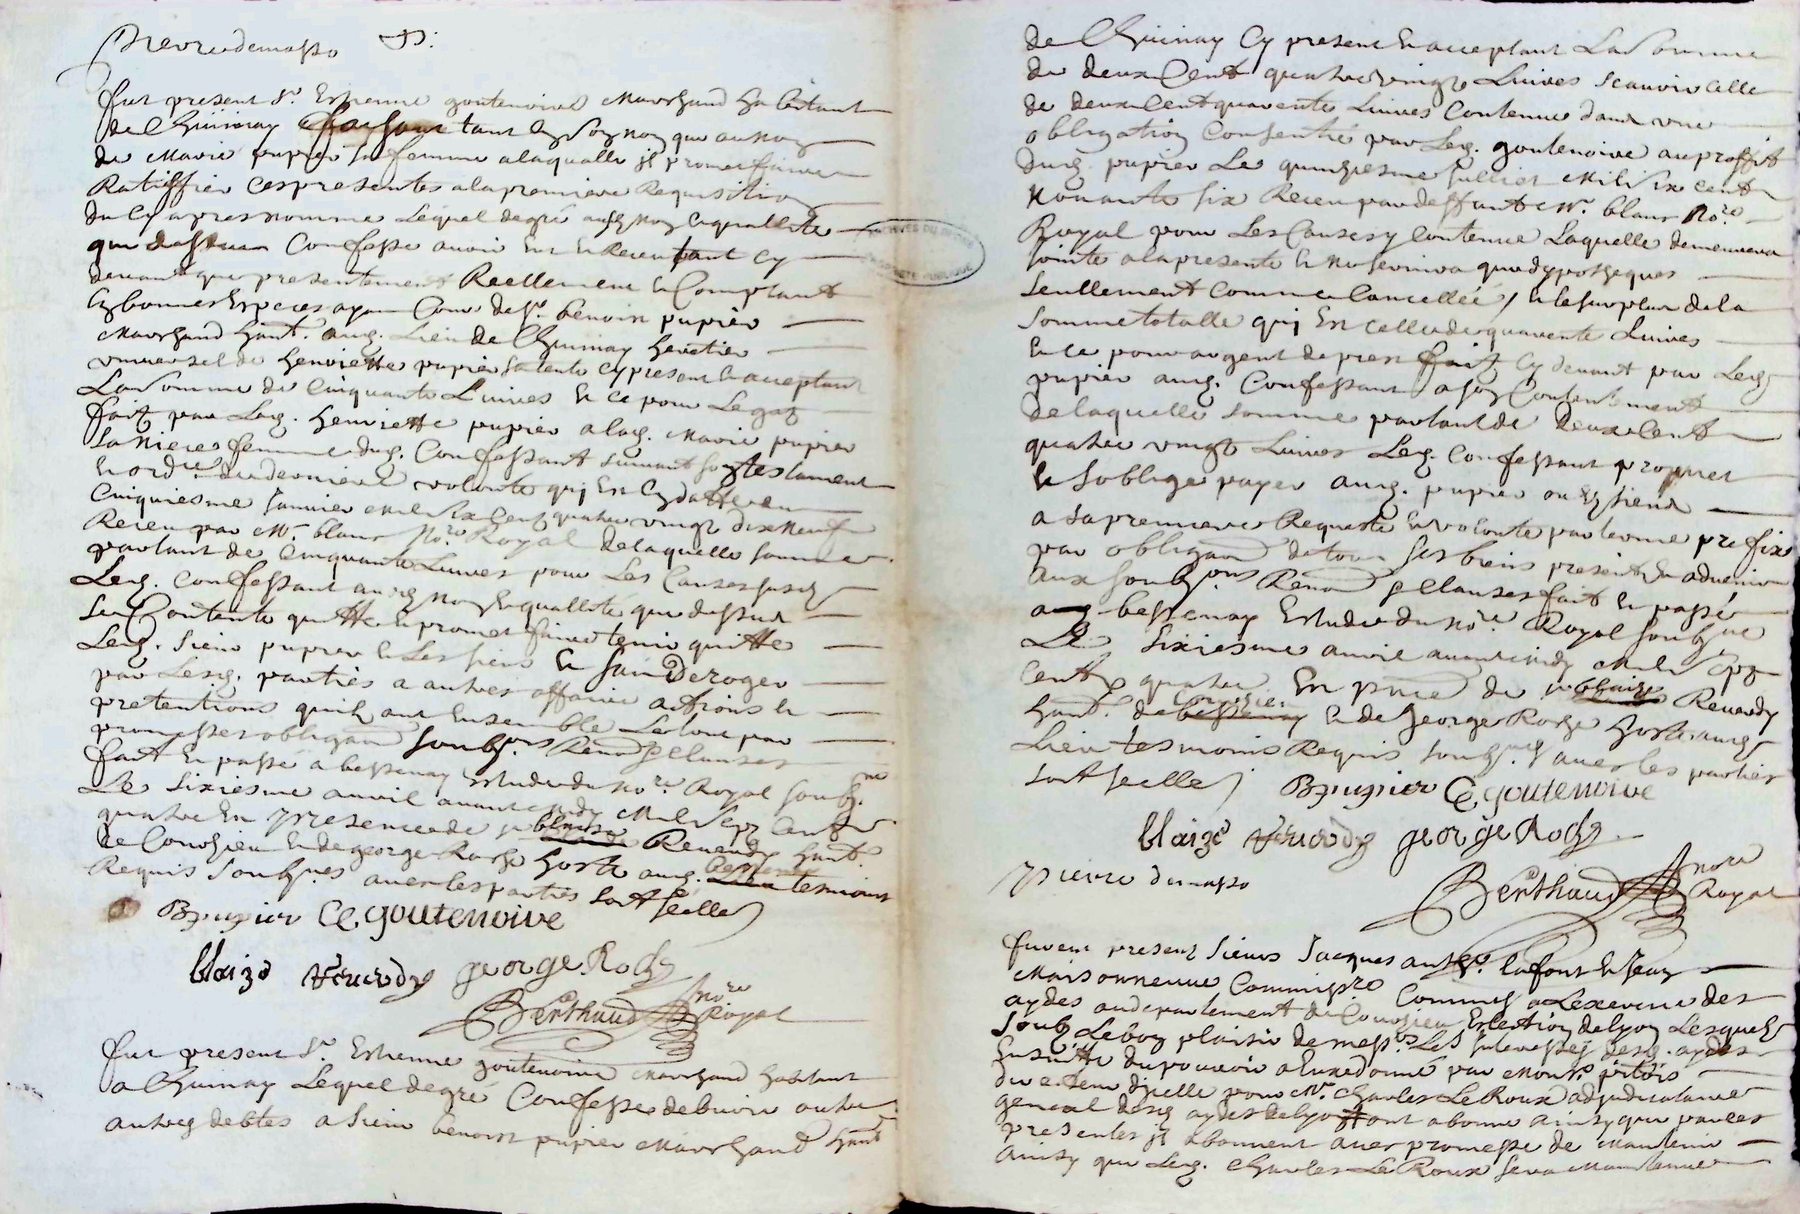 fut present Sr. Estienne goutenoire Marchand habitant
de Chuinay faisant tant en son nom que au nom
de Marie pupier sa femme a laquelle il promet faire
Ratiffier ces presentes a la premiere Requisition
du cy apres nomme Lequel de gré aud. nom et quallite
que dessus Confesse avoir eu et Receu tant cy
devant que presentement Reellement et Comptant
en bonnes Especes ayant Cours de Sr. benoist pupier
Marchand hant. aud. Lieu de Chuinay heretier
universel de henriette pupier sa tente cy present et acceptant
La somme de Cinquante Livres et ce pour Le gaz
fait par Lad. henriette pupier a lad. Marie pupier
sa Niece femme dud. Confessant suivant son testament
et ordre de derniere volonte qui est en datte du
Cinquiesme Janvier Mil six Cent quatre vingt dix Neuf
Receu par Me. blanc Nore. Royal de laquelle somme
partant de Cinquante Livres pour Les Causes susd.
Led. Confessant aud. nom et quallite que dessus
se Contente quitte et promet faire tenir quitte
Led. Sieur pupier et Les siens et sans Deroger
par Lesd. parties a autres affaires actions et
pretentions quils ont Ensemble Le tout par
promesses obligaon soubons Renon et clauses
fait et passé a bessenay Estude du Nore. Royal soubne.
Le Sixiesme avril avant midy Mil Sept Cent
quatre En presence de Sr blaise Reverdy hant.
de Courzieu et de george Roche hoste aud. bessenay tesmoins
Requis soubnes avec les parties sont seelle
B pupier E goutenoire
blaize Reverdy george Roche
Berthaud nore Royal
fut present Sr. Estienne goutenoire Marchand habitant
a Chuinay Lequel de gré Confesse debvoir outre
autres debtes a Sieur benoist pupier Marchand hant
de Chuinay Cy present et acceptant La Somme
de deux Cent quatre vingt Livres scavoir celle
de deux Cent quarente Livres Contenue dans une
obligation Consentie par Led. goutenoire au proffit
dud. pupier Le quinziesme Juillet Mil six cent
Nonante six Receu par deffunt Me. blanc Nore.
Royal pour Les Causes y Contenue Laquelle demeurera
jointe a la presente et ne servira que dyppotheques
seullement comme Cancellée, et le surplus de la
somme totalle qui Est celle de quarente Livres
et ce pour argent de prest fait cy devant par Led.
pupier aud. Confessant a son Contentement
de laquelle somme partant de Deux Cent
quatre vingt Livres Led. Confessant promet
et soblige payer aud. pupier ou Es siens
a sa premiere Requeste et volonte par terme prefix
par obligaon de tous ses biens presents et advenir
aux soubons Renon et clauses fait et passé
aud. bessenay Estude du Nore. Royal soubne
Le Sixiesme avril avant midy Mil Sept
Cent quatre En pnce de Sr blaize Reverdy
hant. de Courzieu et de George Roche hoste aud.
Lieu tesmoins Requis soubnes avec les parties
sont seelle
B pupier E goutenoire
blaize Reverdy george Roche
Berthaud nore Royal
furent present Sieurs Jacques lafont et Jean
Maisonneuve Commis a Lexercice des
aydes au departement de Courzieu Eslection de lyon Lesquels
soubz Le bon plaisir de messrs Les Interesses desd. aydes
en suitte du pouvoir a luy donné par Monsr.
directeur dicelle pour Me. Charles Le Roux adjudicataire
general desd. aydes de lyon ont abonné ainsy que par les
presentes ils abonnent avec promesse de Maintenir
ainsy que Led. Charles Le Roux sera Maintenue